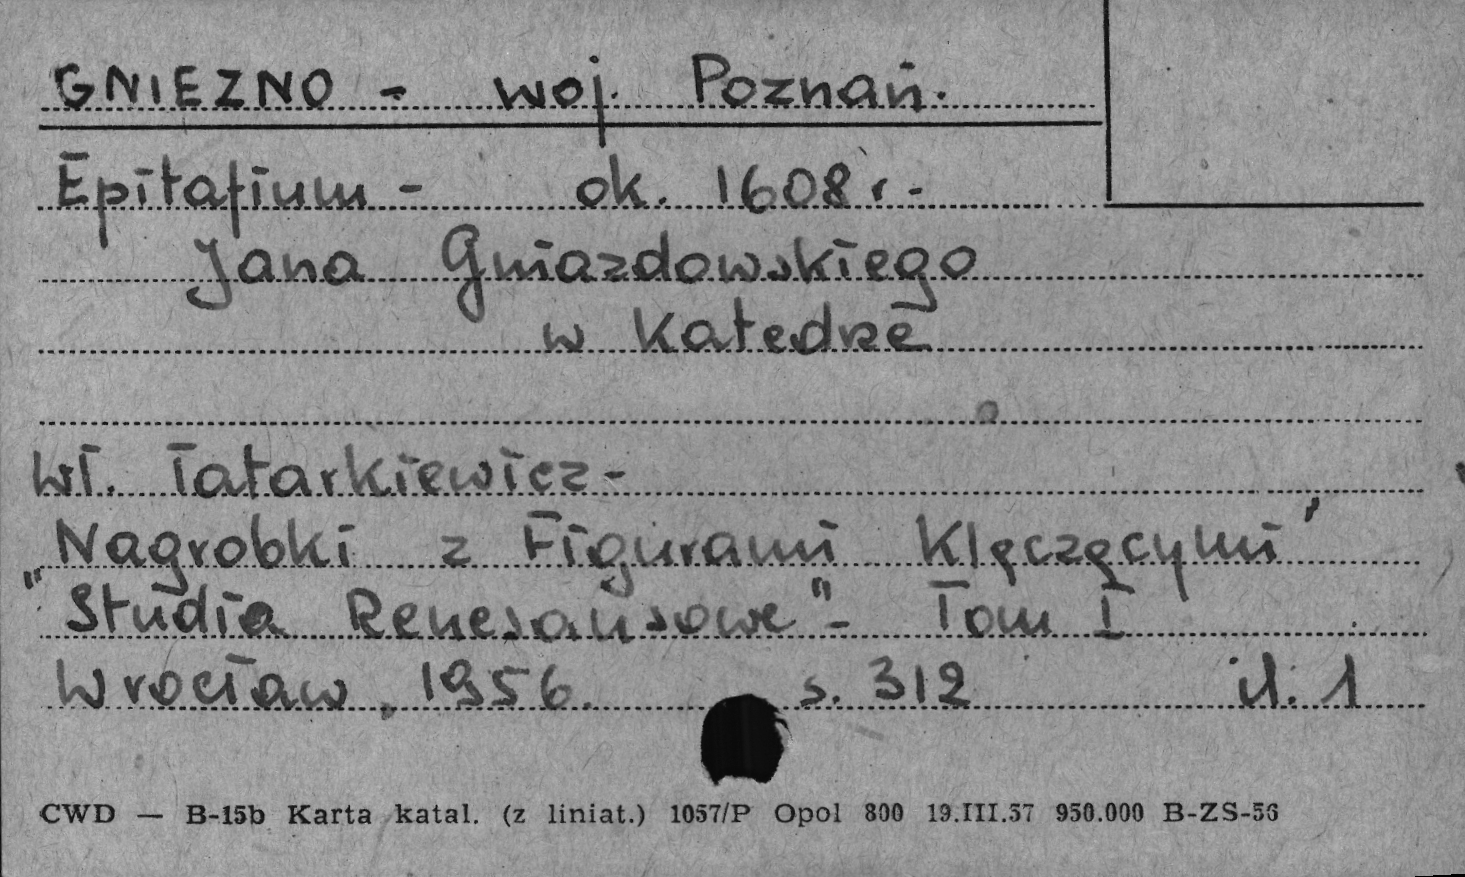 GNIEZNO - woj. Poznań.
Epitafium - ok. 1608 r.-
Jana Gniazdowskiego
w Katedrze
Wł. Tatarkiewicz-
Nagrobki z Figurami Klęczącymi"
"Studia Renesansowe"- Tom I
Wrocław, 1956. s. 312 il. 1
CWD — B-15b Karta katal. (z liniat.) 1057/P Opol 800 19.III.57 950.000 B-ZS-56